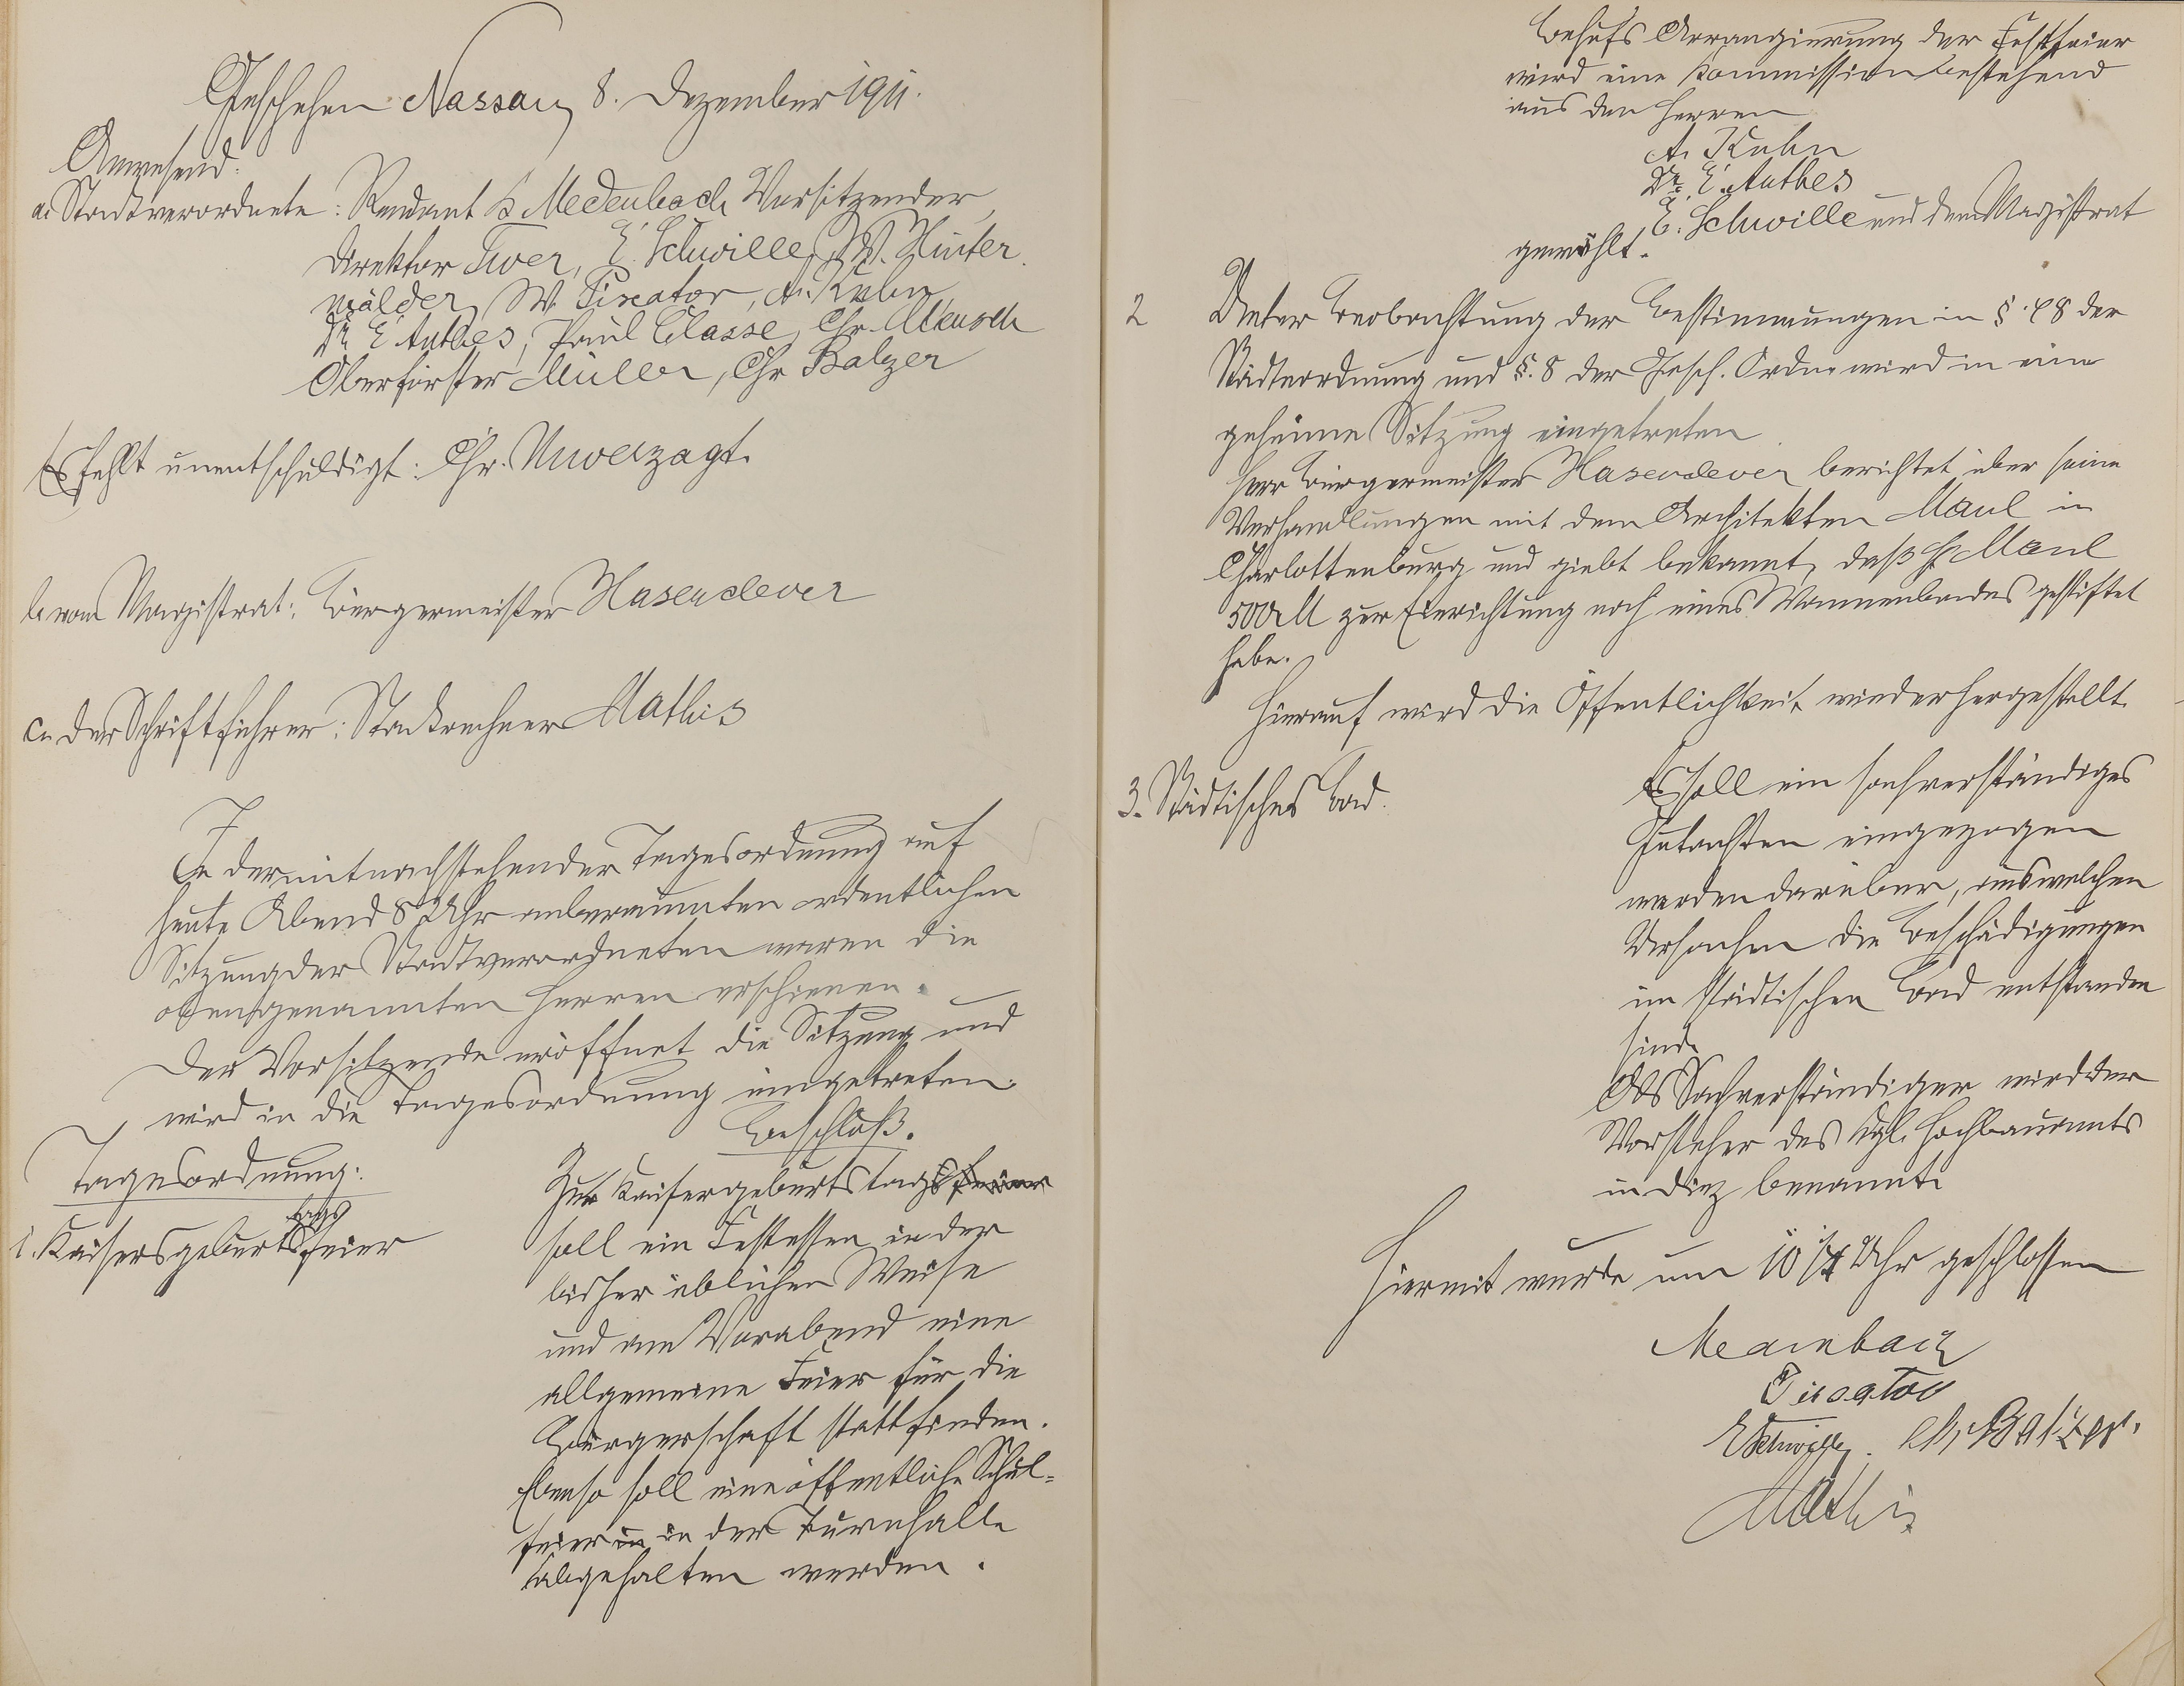 Geschehen Nassau, 8. Dezember 1911.
Anwesend:
a. Stadtverordnete: Rendant Medenbach Vorsitzender,
Direktor Twer, E. Schwille, W. Hinter-
wälder, W. Piscator, A. Kuhn,
Dr. E. Anthes, Paul Glasse, Chr.
Oberförster Müller, Chr Balzer
Es fehlt unentschuldigt: Chr. Unverzagt.
b. vom Magistrat: Bürgermeister Hasenclever
c. der Schriftführer: Stadtrechner Mathis
In der mit nachstehender Tagesordnung auf
heute Abend 8 Uhr anberaumten ordentlichen
Sitzung der Stadtverordneten waren die
obengenannten Herren erschienen.
Der Vorsitzende eröffnet die Sitzung und
wird in die Tagesordnung eingetreten.
Beschluß.
Tagesordnung:
1. Kaisersgeburtstagsfeier
Zur Kaisergeburtstagsfeier
soll ein Festessen in der
bisher üblichen Weise
und am Vorabend eine
allgemeine Feier für die
Bürgerschaft stattfinden.
Ebenso soll eine öffentliche Schul-
feier in in der Turnhalle
abgehalten werden.
Behufs Arrangierung der Festfeier
wird eine Kommission bestehend
aus den Herren
A. Kuhn
Dr. E. Anthes
E. Schwille und dem Magistrat
gewählt.
2 Unter Beobachtung der Bestimmungen in §. 48 der
Städteordnung und §. 8 der Gesch. Ordn. wird in eine
geheime Sitzung eingetreten.
Herr Bürgermeister Hasenclever berichtet über seine
Verhandlungen mit dem Architekten Maul in
Charlottenburg und giebt bekannt, daß H. Maul
500 M zur Einrichtung noch eines Wannenbades gestiftet
habe.
Hierauf wird die Öffentlichkeit wiederhergestellt.
3. Städtisches Bad.
Es soll ein sachverständiges
Gutachten eingezogen
werden darüber, aus welchen
Ursachen die Beschädigungen
im städtischen Bad entstanden
sind.
Als Sachverständiger wird der
Vorsteher des Kgl. Hochbauamts
in Diez benannt.
Hiermit wurde um 10 1/4 Uhr geschlossen
Medenbach
Piscator
E Schwille. Chr Balzer.
Mathis